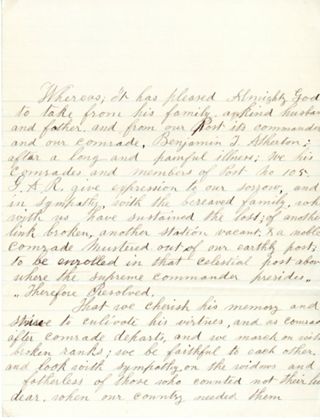 Whereas, it has pleased Almighty God
to take from his family, a kind husband
and father, and from our Post its commander
and our comrade, Benjamin F. Atherton;
after a long and painful illness; we his
Comrades and members of Post no 105.
G.A.R. give expression to our sorrow, and
in sympathy, with the bereaved family, who
with us have sustained the lost; of another
link broken, another station vacant, & a noble
comrade mustered out of our earthly post,
to be enrolled in that celestial post above
where the supreme commander presides.
"Therefore Resolved.
That we cherish his memory and
strive to cultivate his virtues, and as comrade
after comrade departs, and we march on with
broken ranks; we be faithful to each other.
and look with sympathy on the widows and
fatherless of those who counted not their lives
dear, when our country needed them